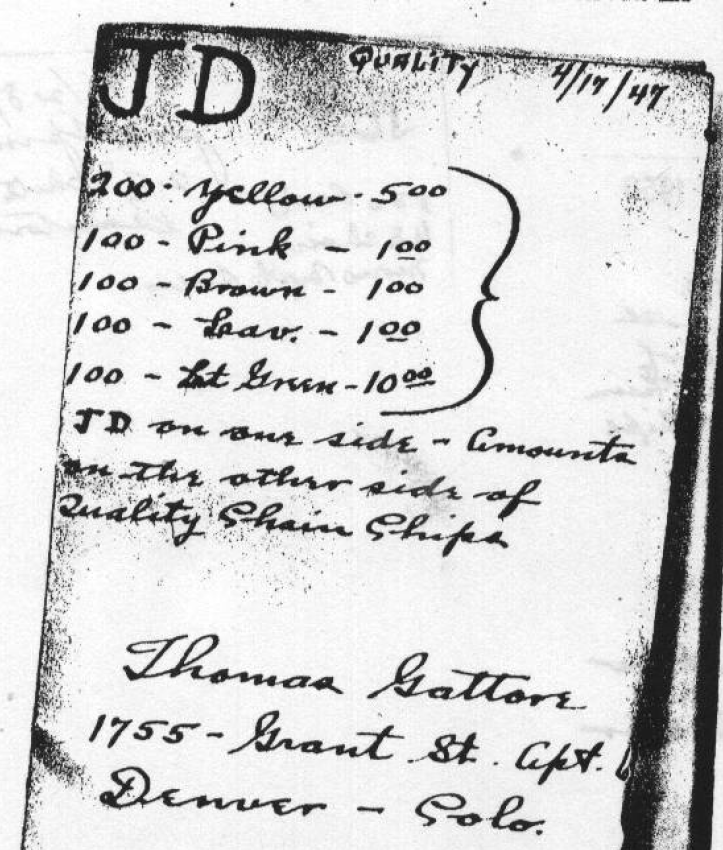 JD QUALITY 4/17/47
200 - Yellow - 5 00
100 - Pink - 1 00
100 - Brown - 1 00
100 - Lav. - 1 00
100 - Lt Green - 10 00
JD on one side - Amounts
on the other side of
Quality Chain Chips
Thomas Gattore
1755 - Grant St. Apt.
Denver - Colo.